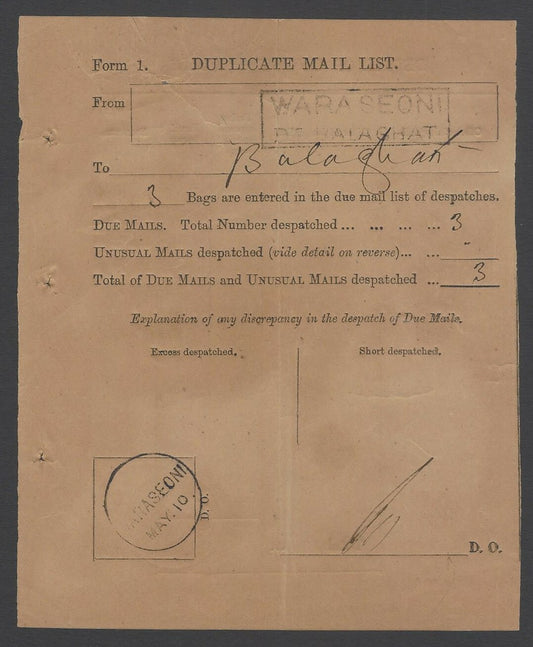 Form 1. DUPLICATE MAIL LIST.
From WARASEONI
DT BALAGHAT
To Balaghat
3 Bags are entered in the due mail list of despatches.
DUE MAILS. Total Number despatched ... ... ... ... 3
UNUSUAL MAILS despatched (vide detail on reverse)... ... "
Total of DUE MAILS and UNUSUAL MAILS despatched ... 3
Explanation of any discrepancy in the despatch of Due Mails.
Excess despatched. Short despatched.
WARASEONI
MAY. 10
D. O.
D. O.